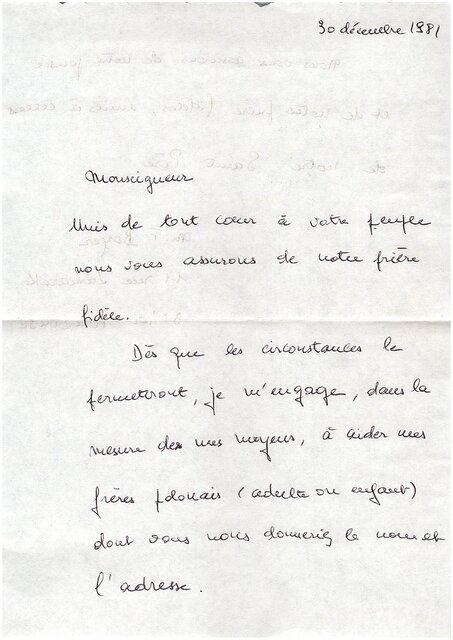 30 décembre 1981
Monseigneur
Unis de tout cœur à votre peuple
nous vous assurons de notre prière
fidèle.
Dès que les circonstances le
permettront, je m'engage, dans la
mesure de mes moyens, à aider mes
frères polonais (adulte ou enfant)
dont vous nous donneriez le nom et
l'adresse.